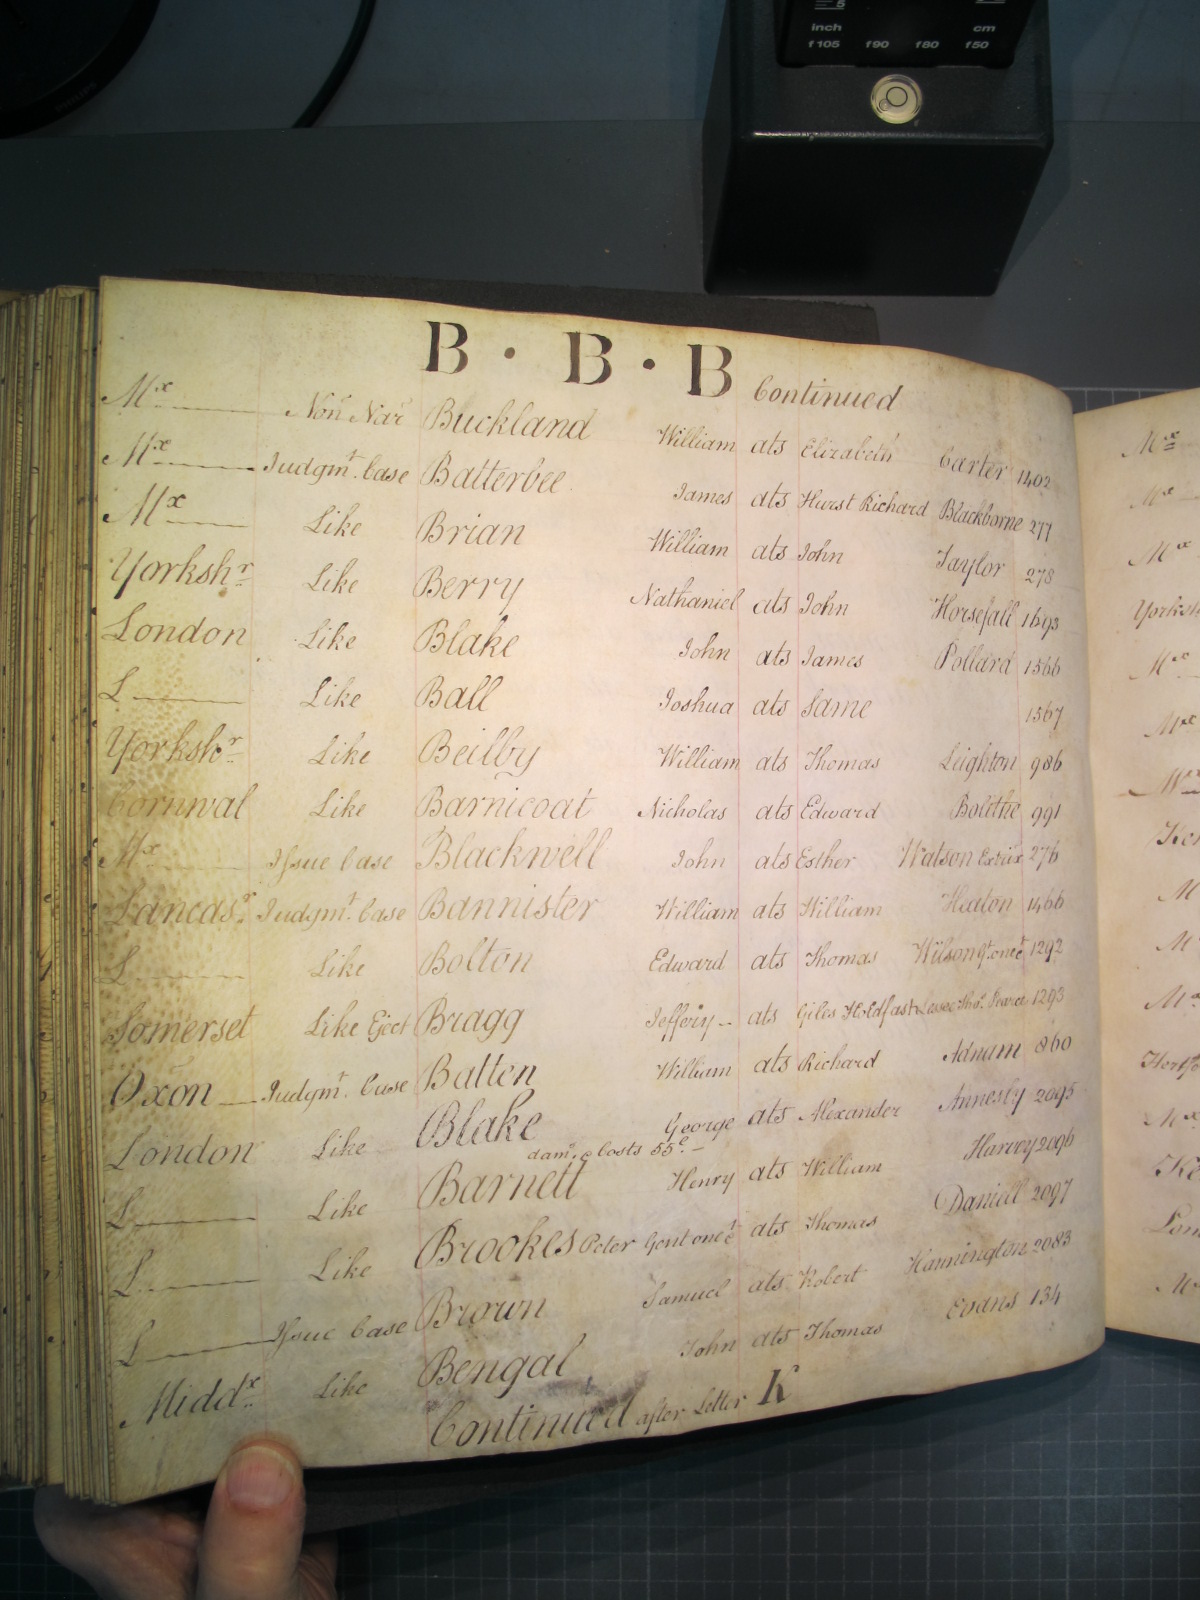 5
inch cm
f105 f90 f80 f50
PHILIPS
B · B · B Continued
Mx Non Nar Buckland William ats Elizabeth Carter 1402
Mx Judgmt. Case Batterbee James ats Hurst Richard Blackborne 277
Mx Like Brian William ats John Taylor 278
Yorkshr Like Berry Nathaniel ats John Horsefall 1693
London Like Blake John ats James Pollard 1566
L Like Ball Joshua ats Same 1567
Yorkshr Like Beilby William ats Thomas Leighton 986
Cornwal Like Barnicoat Nicholas ats Edward Bolithe 991
Mx Issue Case Blackwell John ats Esther Watson Extrix 276
Lancasr Judgmt. Case Bannister William ats William Heaton 1466
L Like Bolton Edward ats Thomas Wilson Gt. onect 1292
Somerset Like Eject Bragg Jeffery ats Giles Holdfast Lessee Thos. Pearce 1293
Oxon Judgmt. Case Batten William ats Richard Adnam 860
London Like Blake George ats Alexander Annesly 2095
dams. & Costs 55£. –
L Like Barnett Henry ats William Harvey 2096
L Like Brookes Peter Gent onect ats Thomas Daniell 2097
L Issue Case Brown Samuel ats Robert Hannington 2083
Middx Like Bengal John ats Thomas Evans 134
Continued after Letter K
Mx
Mx
Mx
Mx
Mx